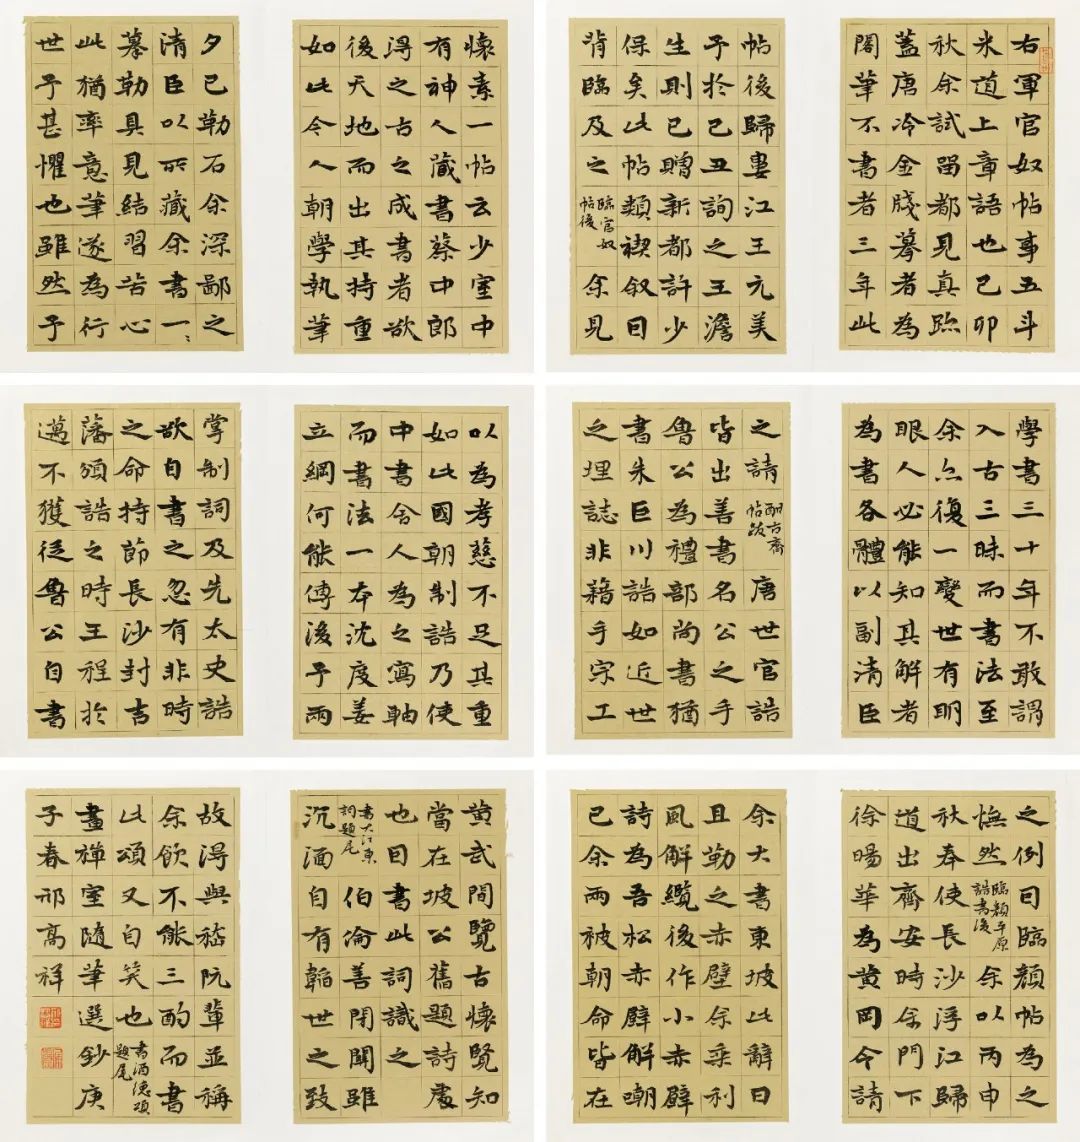 右軍官奴帖事五斗
米道上章語也己卯
秋余試留都見真跡
蓋唐冷金牋摹者為
閣筆不書者三年此
帖後歸婁江王元美
予於己丑詢之王澹
生則已贈新都許少
保矣此帖類禊叙因
背臨及之臨官奴帖後余見
懷素一帖云少室中
有神人藏書蔡中郎
得之古之成書者欲
後天地而出其持重
如此今人朝學執筆
夕已勒石余深鄙之
清臣以所藏余書一〻
摹勒具見結習苦心
此猶率意筆遂為行
世予甚懼也雖然予
學書三十年不敢謂
入古三昧而書法至
余亦復一變世有明
眼人必能知其解者
為書各體以副清臣
之請酣古齋帖跋唐世官誥
皆出善書名公之手
魯公為禮部尚書猶
書朱巨川誥如近世
之埋誌非藉手宗工
以為孝慈不足其重
如此國朝制誥乃使
中書舍人為之寫軸
而書法一本沈度姜
立綱何能傳後予兩
掌制詞及先太史誥
欲自書之忽有非時
之命持節長沙封吉
藩頒誥之時王程於
邁不獲從魯公自書
之例因臨顏帖為之
憮然臨顏平原誥書後余以丙申
秋奉使長沙浮江歸
道出齊安時余門下
徐暘華為黃岡令請
余大書東坡此辭因
且勒之赤壁余乘利
風解纜後作小赤壁
詩為吾松赤壁解嘲
已余兩被朝命皆在
黃武間覽古懷賢知
當在坡公舊題詩處
也因書此詞識之
書大江東詞題尾伯倫善閉關雖
沉湎自有韜世之致
故得與嵇阮輩並稱
余飲不能三酌而書
此頌又自笑也書酒德頌題尾
畫禪室隨筆選鈔庚
子春邢高祥